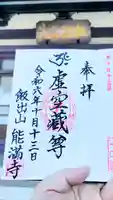 奉拝
虚空蔵尊
令和六年十月十三日
飯出山 能満寺